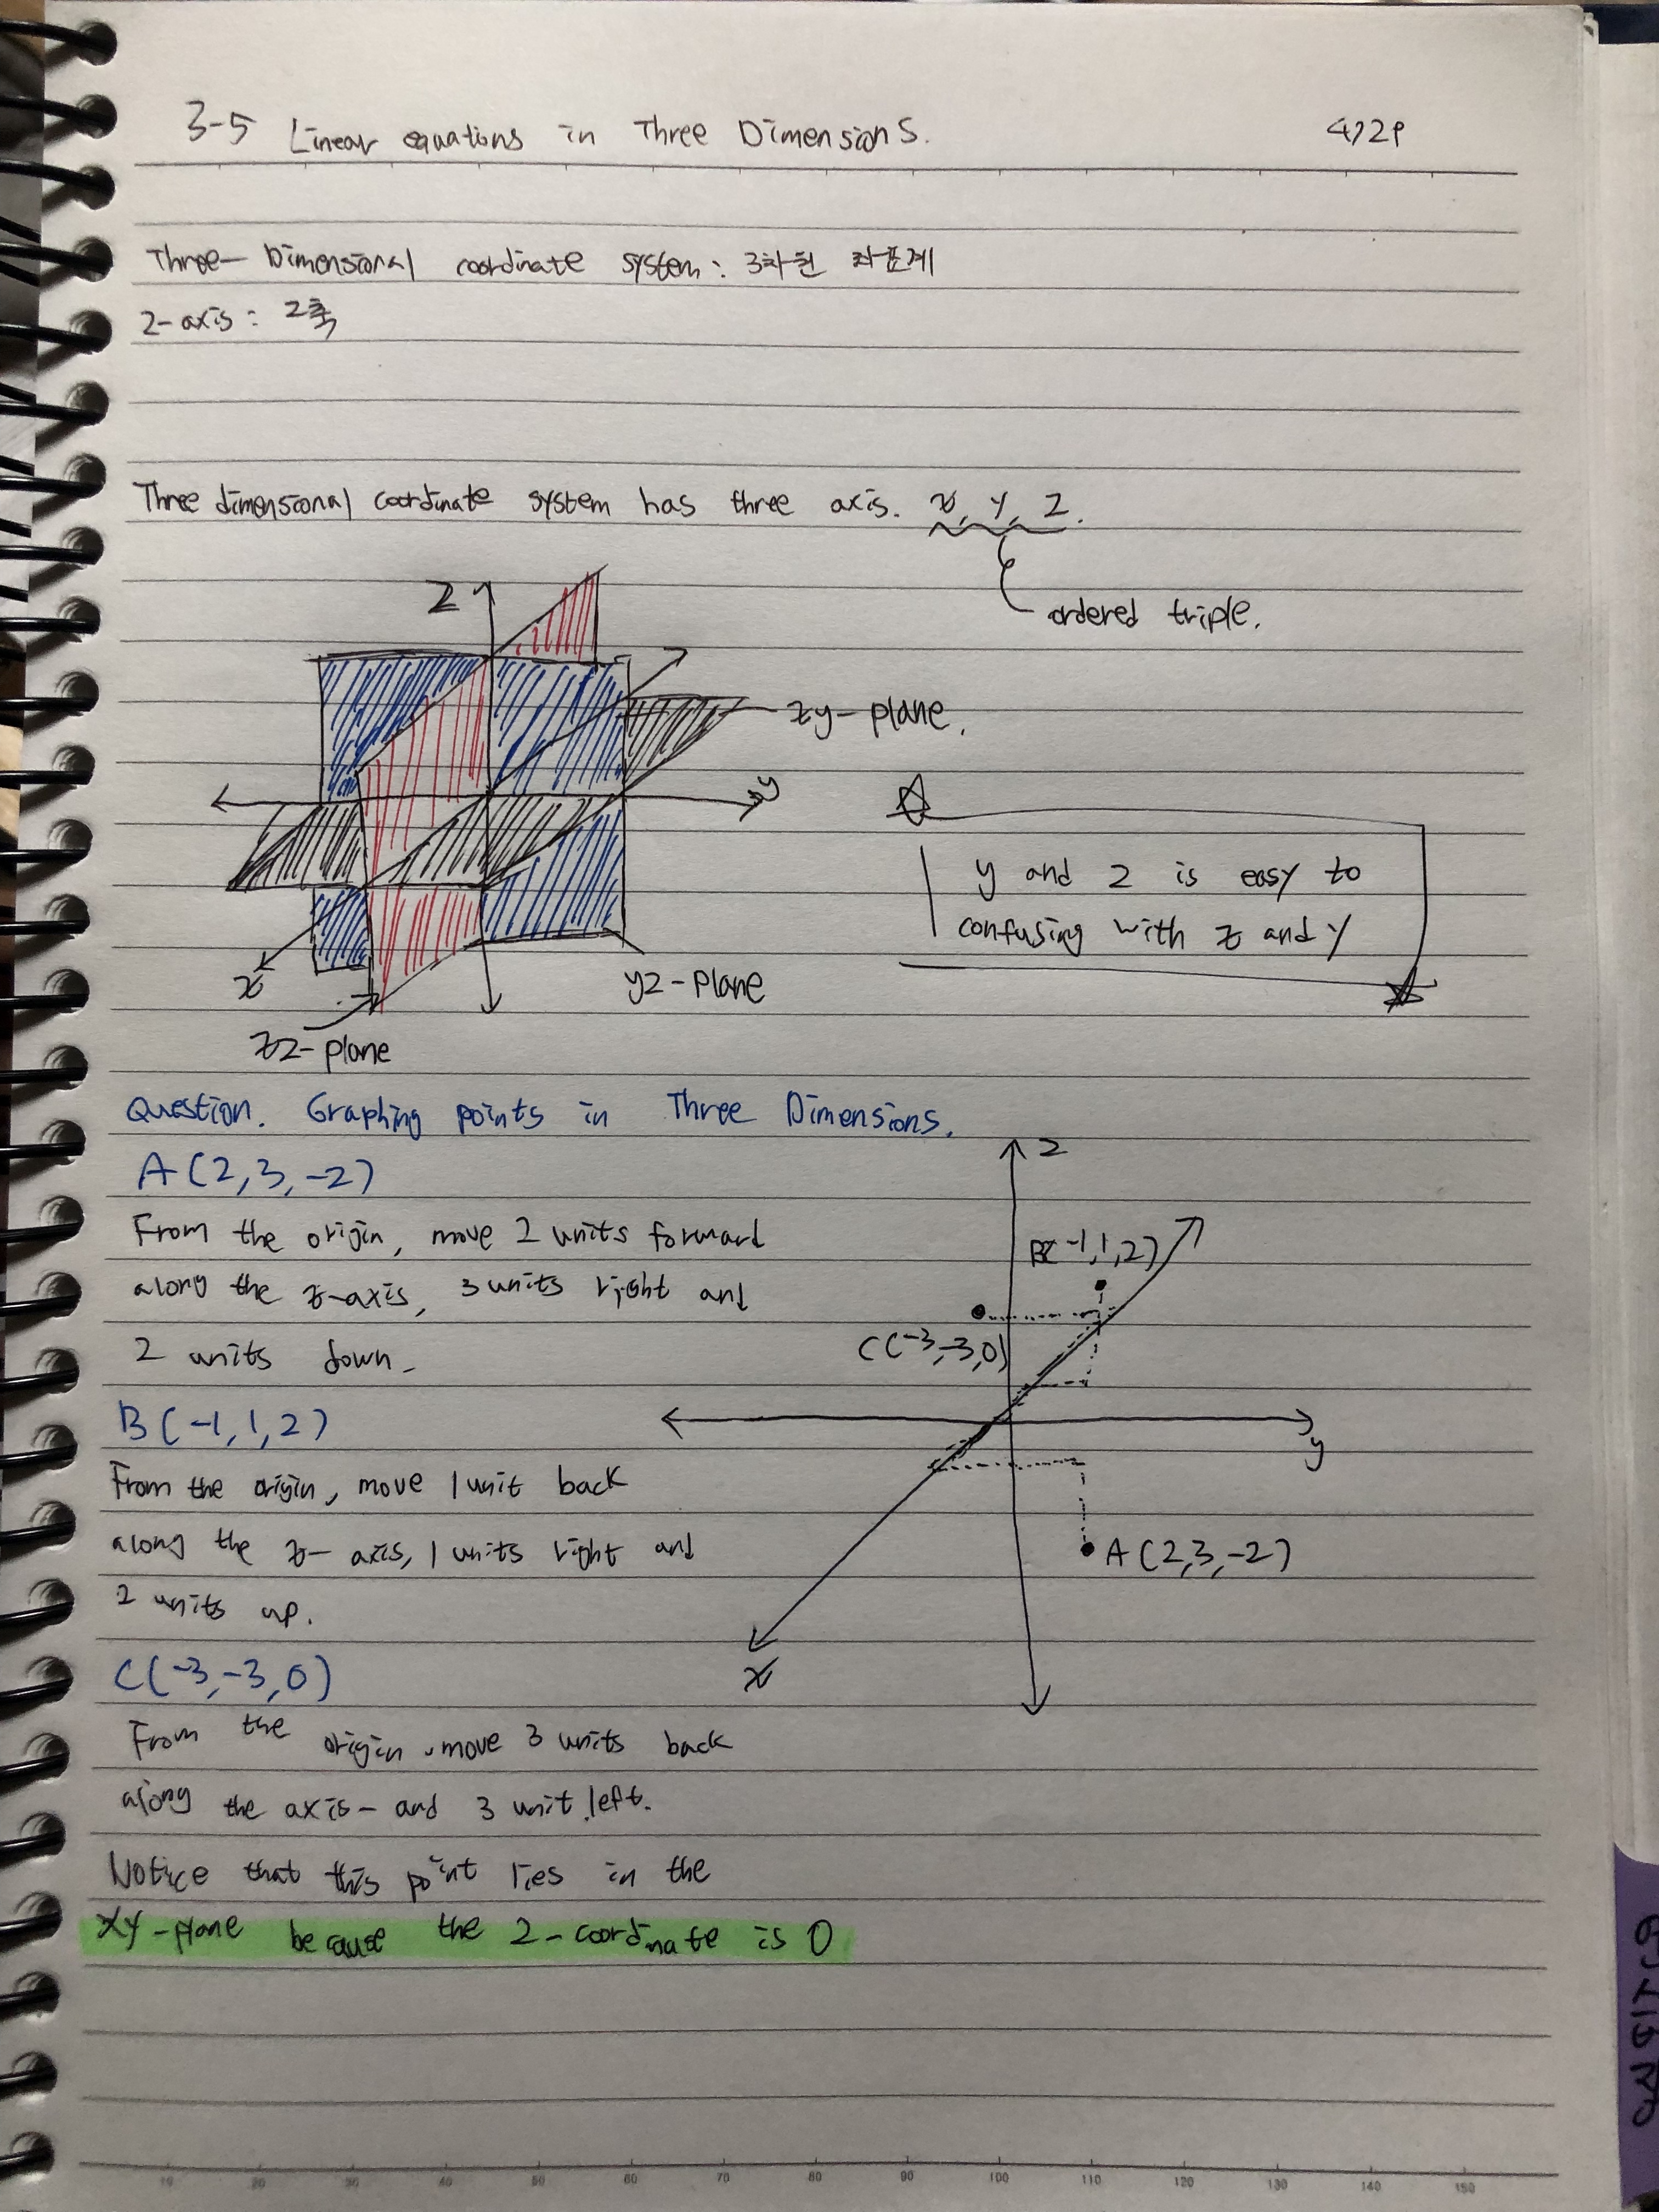 3-5 Linear equations in Three Dimensions.
Three-Dimensional coordinate system: 3차원 좌표계
z-axis: z축
Three dimensional coordinate system has three axis. x, y, z.
ordered triple.
z
xy-plane.
y
y and z is easy to
confusing with x and y
x
yz-plane
xz-plane
Question. Graphing points in Three Dimensions.
z
A(2,3,-2)
From the origin, move 2 units forward
along the x-axis, 3 units right and
2 units down.
B(-1,1,2)
C(-3,-3,0)
B(-1,1,2)
y
From the origin, move 1 unit back
along the x-axis, 1 units right and
2 units up.
A(2,3,-2)
x
C(-3,-3,0)
From the origin, move 3 units back
along the axis- and 3 unit left.
Notice that this point lies in the
xy-plane because the z-coordinate is 0
10 20 30 40 50 60 70 80 90 100 110 120 130 140 150